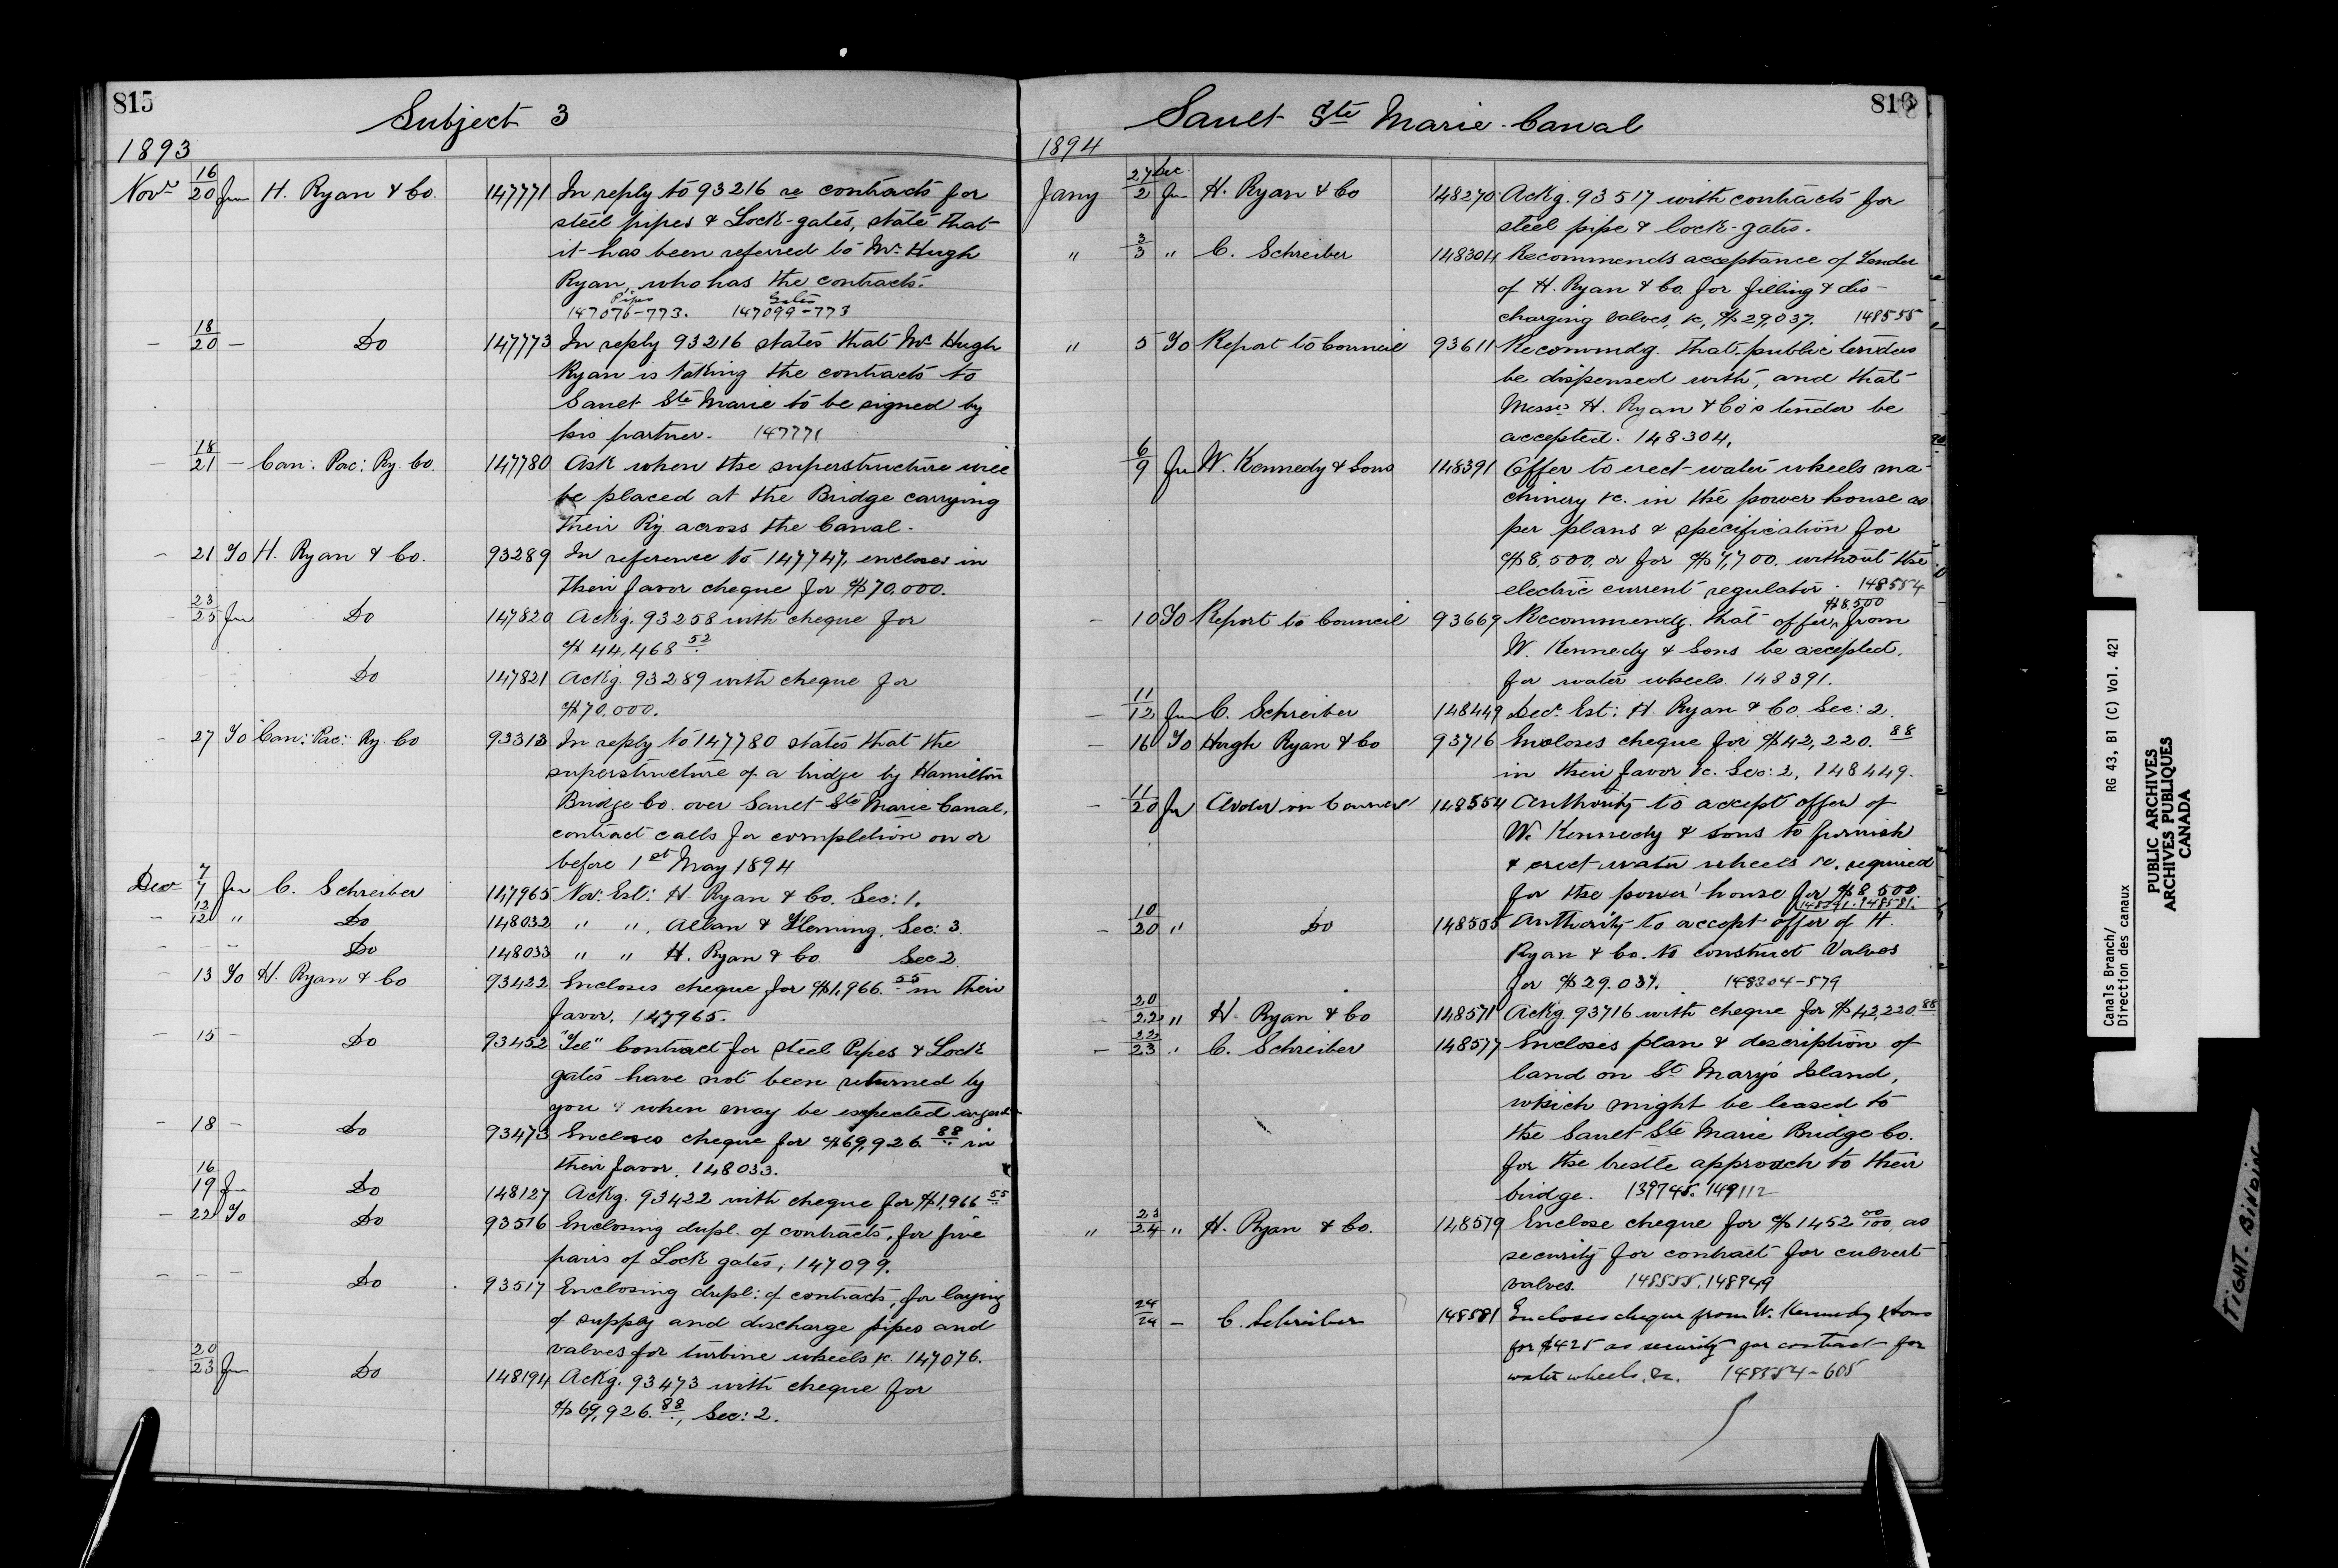 815
Subject 3
1893
Novr 16/20 Fm H. Ryan & Co. 147771 In reply to 93216 re contracts for
steel pipes & Lock-gates, state that
it has been referred to Mr. Hugh
Ryan, who has the contracts.
Pipes Gates
147076-773. 147099-773
— 18/20 — Do 147773 In reply 93216 states that Mr Hugh
Ryan is taking the contracts to
Sault Ste Marie to be signed by
his partner. 147771
— 18/21 — Can: Pac: Ry. Co. 147780 Ask when the superstructure will
be placed at the Bridge carrying
their Ry. across the Canal.
— 21 To H. Ryan & Co. 93289 In reference to 147747, encloses in
their favor cheque for $70,000.
— 23/25 Fm Do 147820 Ackg. 93258 with cheque for
$44,468 52
— — — Do 147821 Ackg. 93289 with cheque for
$70,000.
— 27 To Can: Pac: Ry. Co 93313 In reply to 147780 states that the
superstructure of a bridge by Hamilton
Bridge Co. over Sault Ste Marie Canal,
contract calls for completion on or
before 1st May 1894
Dec 7/7 Fm C. Schreiber 147965 Nov: Est: H. Ryan & Co. Sec: 1.
— 12/12 " Do 148032 " " Allan & Fleming, Sec: 3.
— — — Do 148033 " " H. Ryan & Co. Sec 2.
— 13 To H. Ryan & Co 93422 Encloses cheque for $1,966.55 in their
favor, 147965.
— 15 — Do 93452 "Tel" Contract for steel Pipes & Lock
gates have not been returned by
you & when may be expected urgent
— 18 — Do 93473 Encloses cheque for $69,926.88 in
their favor, 148033.
16/19 Fm Do 148127 Ackg. 93422 with cheque for $1,966 55
— 22 To Do 93516 Enclosing dupl. of contracts, for five
pairs of Lock gates, 147099.
— — — Do 93517 Enclosing dupl: of contracts, for laying
of supply and discharge pipes and
valves for turbine wheels &c. 147076.
20/23 Fm Do 148194 Ackg. 93473 with cheque for
$69,926.88, Sec: 2.
816
Sault Ste Marie Canal
1894
Jany 27 Dec/2 Fm H. Ryan & Co 148270 Ackg. 93517 with contracts for
steel pipe & lock-gates.
" 3/3 " C. Schreiber 148304 Recommends acceptance of Tender
of H. Ryan & Co. for filling & dis-
charging valves, &c, $29,037. 148555
" 5 To Report to Council 93611 Recommdg. that public tenders
be dispensed with, and that
Messrs H. Ryan & Co's tender be
accepted. 148304,
6/9 Fm W. Kennedy & Sons 148391 Offer to erect water wheels ma-
chinery &c. in the power house as
per plans & specification for
$8,500, or for $7,700. without the
electric current regulator. 148554
— 10 To Report to Council 93669 Recommendg. that offer, $8500 from
W. Kennedy & Sons be accepted,
for water wheels. 148391.
— 11/12 Fm C. Schreiber 148449 Decr. Est: H. Ryan & Co. Sec: 2.
— 16 To Hugh Ryan & Co 93716 Encloses cheque for $42,220.88
in their favor &c. Sec: 2, 148449.
— 11/20 Fm Order in Council 148554 Authority to accept offer of
W. Kennedy & Sons to furnish
& erect water wheels &c. required
for the power house for $8,500.
148581.
— 10/20 " Do 148555 Authority to accept offer of H.
Ryan & Co. to construct Valves
for $29,037. 148304-579
— 20/22 " H. Ryan & Co 148571 Ackg. 93716 with cheque for $42,220.88
— 22/23 " C. Schreiber 148577 Encloses plan & description of
land on St Mary's Island,
which might be leased to
the Sault Ste Marie Bridge Co.
for the trestle approach to their
bridge. 139745. 149112
" 23/24 " H. Ryan & Co. 148579 Enclose cheque for $1452 00/100 as
security for contract for culvert
valves. 148555. 148949
24/24 — C. Schreiber 148581 Encloses cheque from W. Kennedy & Sons
for $425 as security for contract for
water wheels, &c. 148554-605
Canals Branch/
Direction des canaux
RG 43, B1 (C) Vol. 421
PUBLIC ARCHIVES
ARCHIVES PUBLIQUES
CANADA
TIGHT BINDING